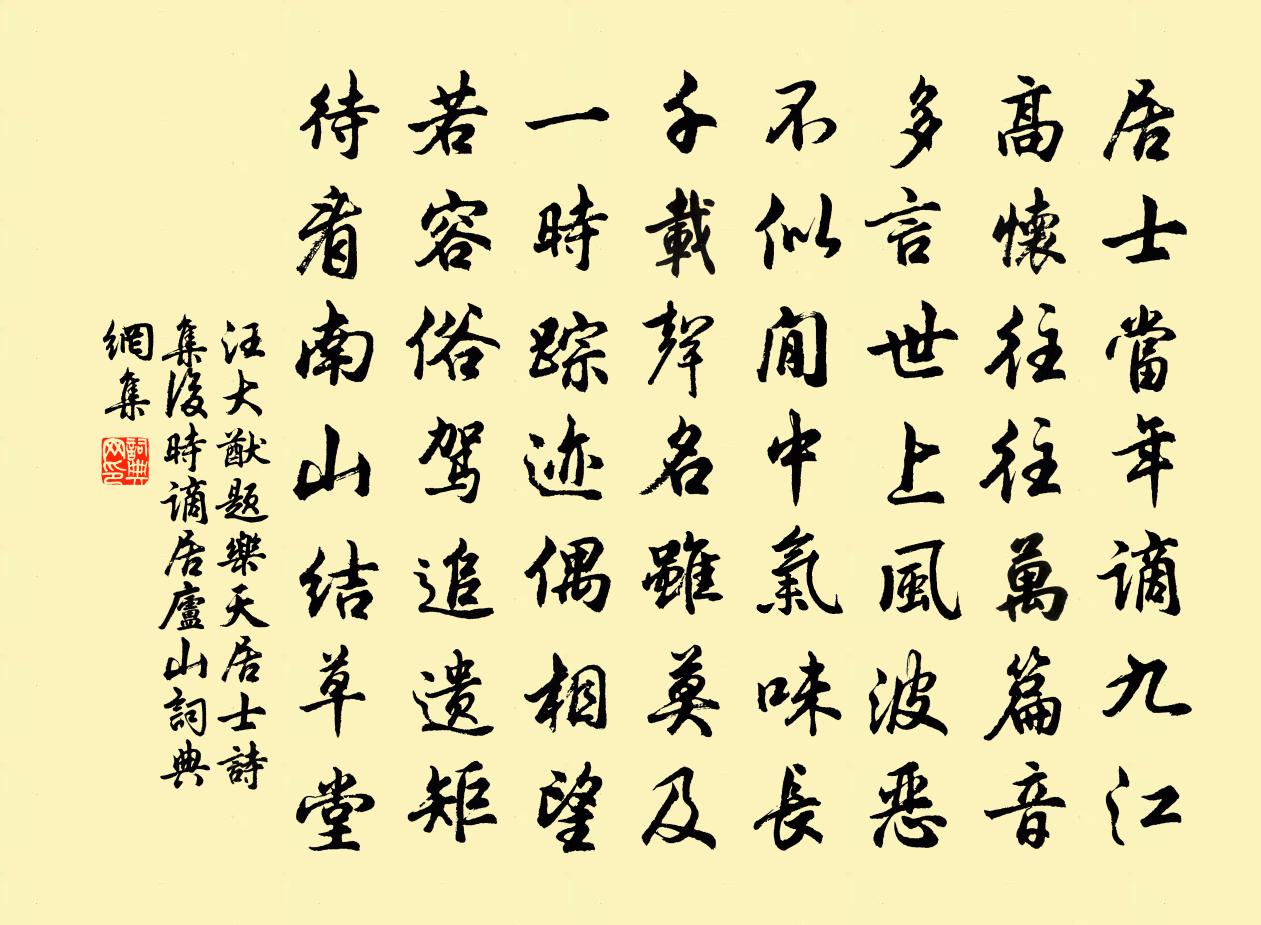 居士當年謫九江
高懷往往萬篇音
多言世上風波惡
不似閒中氣味長
千載聲名雖莫及
一時踪迹偶相望
若容俗駕追遺矩
待看南山結草堂
汪大猷題樂天居士詩
集後時謫居廬山詞典
網集
詞典網印